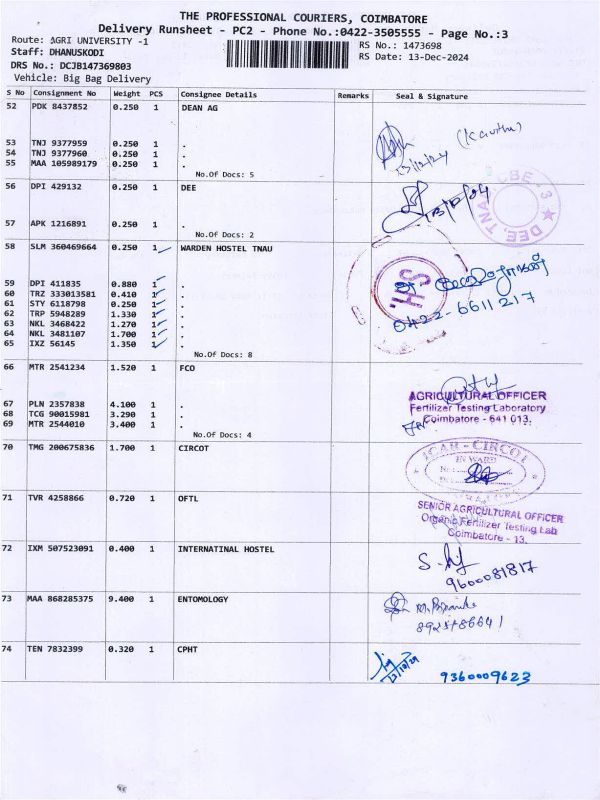 THE PROFESSIONAL COURIERS, COIMBATORE
Delivery Runsheet - PC2 - Phone No.:0422-3505555 - Page No.:3
Route: AGRI UNIVERSITY -1
RS No.: 1473698
Staff: DHANUSKODI
RS Date: 13-Dec-2024
DRS No.: DCJB147369803
Vehicle: Big Bag Delivery
S No Consignment No Weight PCS Consignee Details Remarks Seal & Signature
52 PDK 8437852 0.250 1 DEAN AG
(Kavitha)
13/12/24
53 TNJ 9377959 0.250 1 .
54 TNJ 9377960 0.250 1 .
55 MAA 105989179 0.250 1 .
No.Of Docs: 5
56 DPI 429132 0.250 1 DEE
DEE, TNAU, CBE - 3
57 APK 1216891 0.250 1 .
No.Of Docs: 2
58 SLM 360469664 0.250 1 WARDEN HOSTEL TNAU
HS
0422-6611217
59 DPI 411835 0.880 1 .
60 TRZ 333013581 0.410 1 .
61 STY 6118798 0.250 1 .
62 TRP 5948289 1.330 1 .
63 NKL 3468422 1.270 1 .
64 NKL 3481107 1.700 1 .
65 IXZ 56145 1.350 1 .
No.Of Docs: 8
66 MTR 2541234 1.520 1 FCO
AGRICULTURAL OFFICER
Fertilizer Testing Laboratory
Coimbatore - 641 013.
67 PLN 2357838 4.100 1 .
68 TCG 90015981 3.290 1 .
69 MTR 2544010 3.400 1 .
No.Of Docs: 4
70 TMG 200675836 1.700 1 CIRCOT
ICAR - CIRCOT
IN WARD
71 TVR 4258866 0.720 1 OFTL
SENIOR AGRICULTURAL OFFICER
Organic Fertilizer Testing Lab
Coimbatore - 13.
72 IXM 507523091 0.400 1 INTERNATINAL HOSTEL
9600081817
73 MAA 868285375 9.400 1 ENTOMOLOGY
74 TEN 7832399 0.320 1 CPHT
9360009623